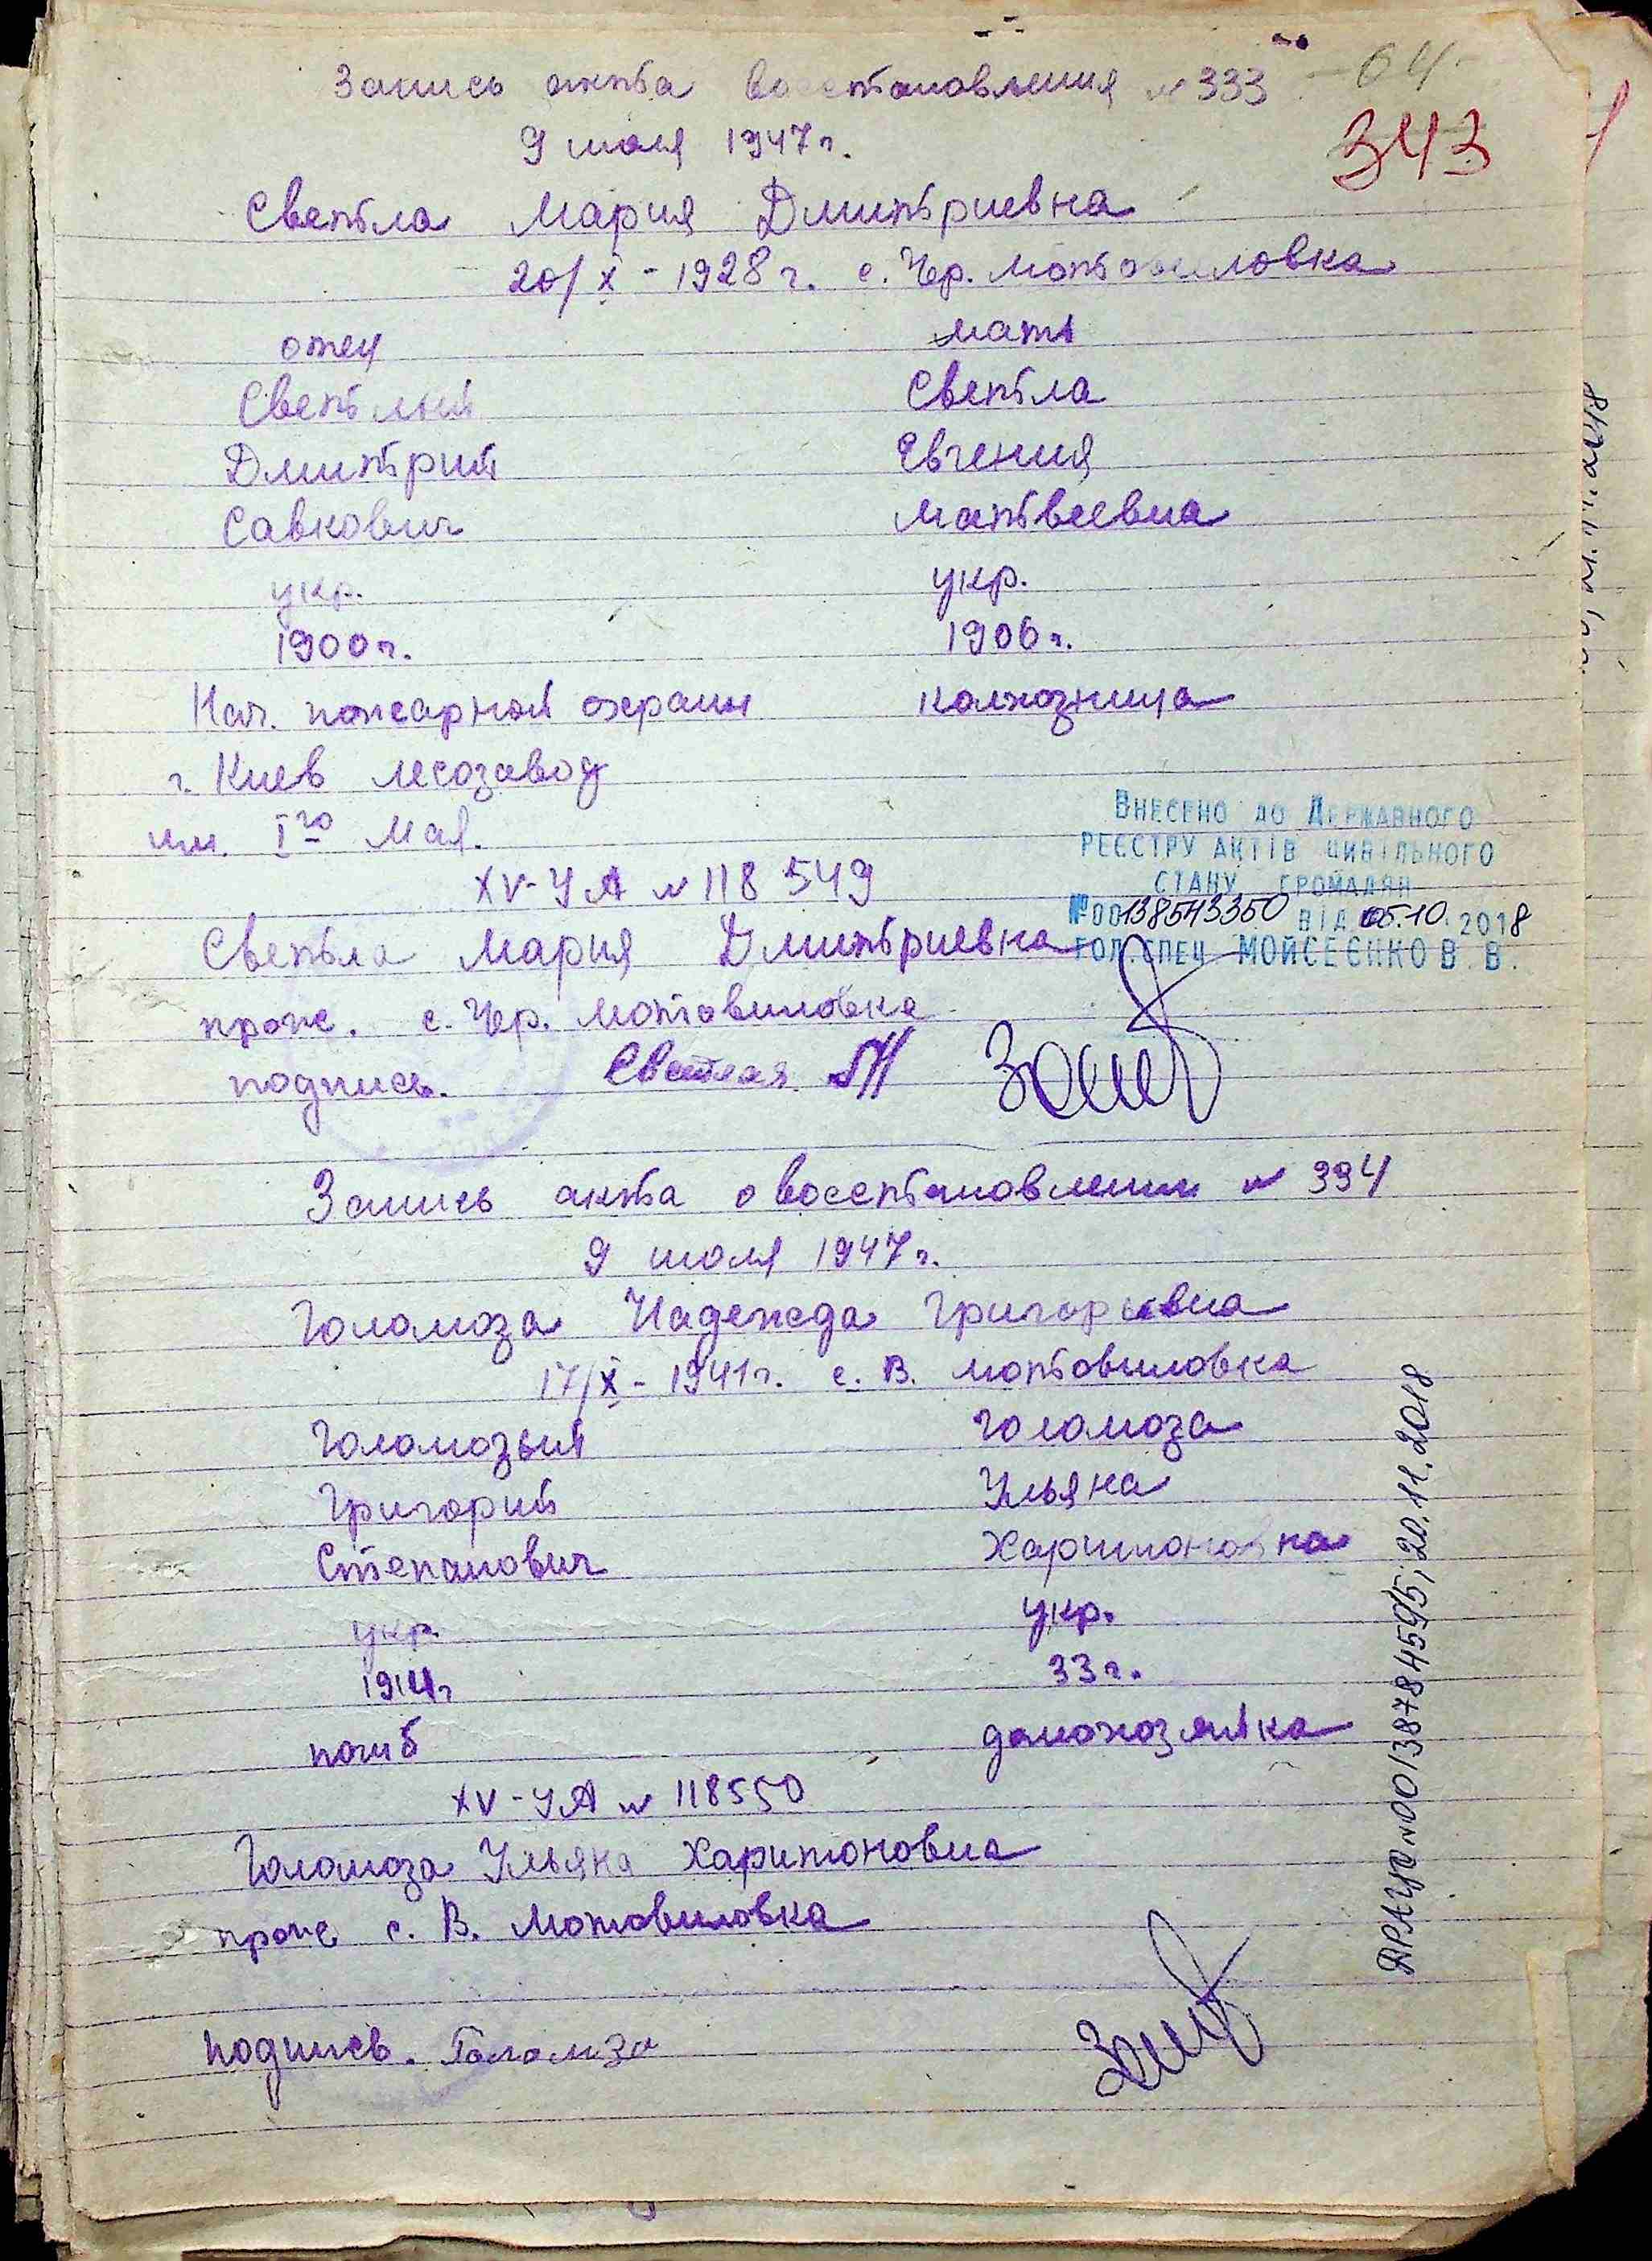 Запись акта восстановления № 333
-64-
343
9 июля 1947г.
Светла Мария Дмитриевна
20/X - 1928г. с. Чер. Мотовиловка
отец мать
Светлый Светла
Дмитрий Евгения
Савкович Матвеевна
укр. укр.
1900г. 1906г.
Нач. пожарной охраны колхозница
г. Киев лесозавод
им. Iго Мая.
Внесено до Державного
реєстру актів цивільного
стану громадян
№00138543350 від 05.10.2018
Гол.спец Мойсеєнко В.В.
XV-УА № 118549
Светла Мария Дмитриевна
прож. с. Чер. Мотовиловка
подпись. Светлая М
Запись акта о восстановлении № 334
9 июля 1947г.
Голомоза Надежда Григорьевна
17/X - 1941г. с. В. Мотовиловка
Голомозый Голомоза
Григорий Ульяна
Степанович Харитоновна
укр. укр.
1914г 33г.
погиб домохозяйка
XV-УА № 118550
Голомоза Ульяна Харитоновна
прож с. В. Мотовиловка
подпись. Голомза
ДРАЦС №00138784595; 20.11.2018